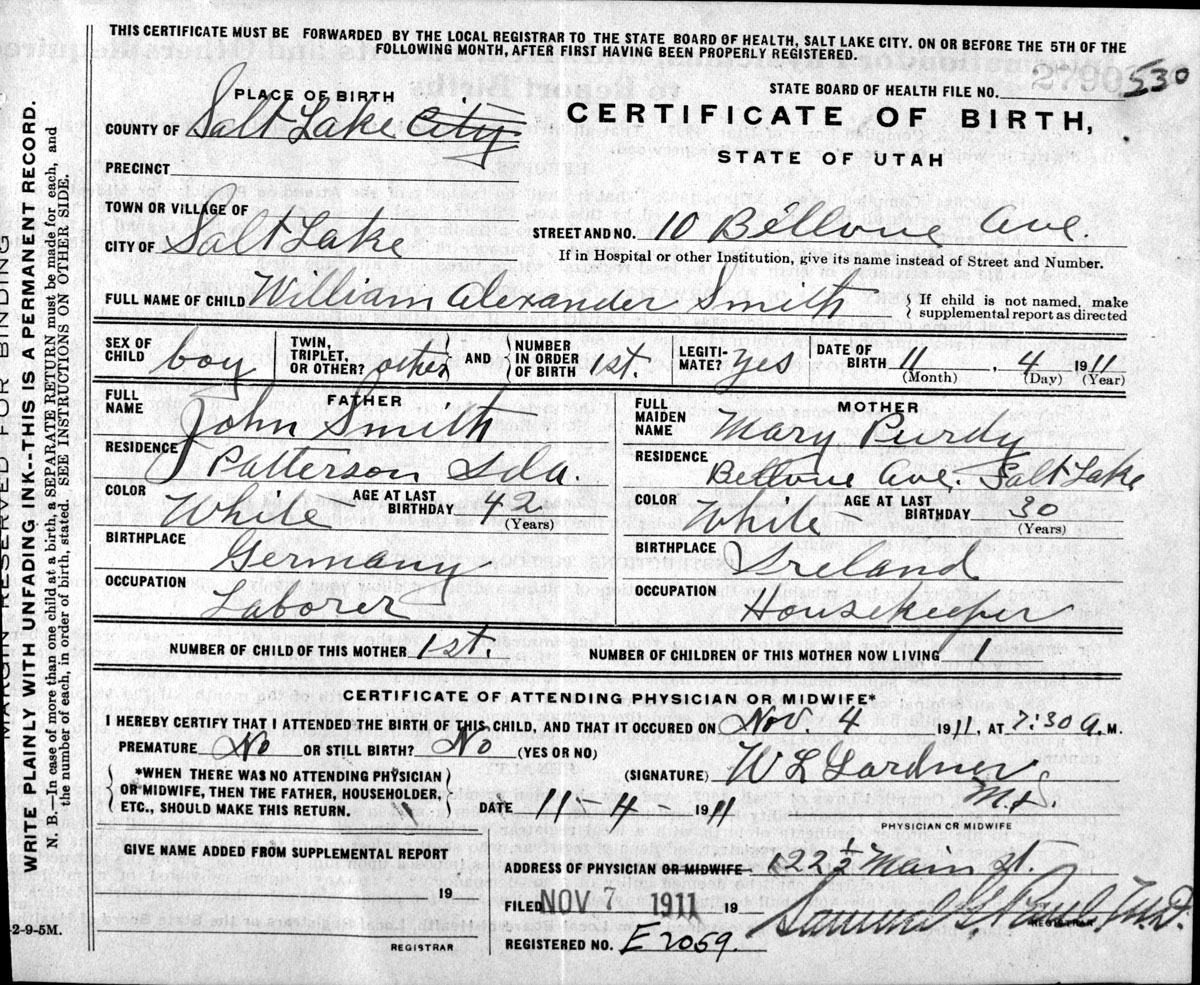 THIS CERTIFICATE MUST BE FORWARDED BY THE LOCAL REGISTRAR TO THE STATE BOARD OF HEALTH, SALT LAKE CITY. ON OR BEFORE THE 5TH OF THE
FOLLOWING MONTH, AFTER FIRST HAVING BEEN PROPERLY REGISTERED.
STATE BOARD OF HEALTH FILE NO. 530
PLACE OF BIRTH
CERTIFICATE OF BIRTH,
COUNTY OF Salt Lake City
STATE OF UTAH
PRECINCT
TOWN OR VILLAGE OF
CITY OF Salt Lake STREET AND NO. 10 Bellvue Ave.
If in Hospital or other Institution, give its name instead of Street and Number.
FULL NAME OF CHILD William Alexander Smith { If child is not named, make supplemental report as directed
SEX OF CHILD boy TWIN, TRIPLET, OR OTHER? other AND { NUMBER IN ORDER OF BIRTH 1st. LEGITI-MATE? yes DATE OF BIRTH 11, 4 1911
(Month) (Day) (Year)
FATHER
FULL NAME John Smith
RESIDENCE Patterson Ida.
COLOR White AGE AT LAST BIRTHDAY 42
(Years)
BIRTHPLACE Germany
OCCUPATION Laborer
MOTHER
FULL MAIDEN NAME Mary Purdy
RESIDENCE Bellvue Ave. Salt Lake
COLOR White AGE AT LAST BIRTHDAY 30
(Years)
BIRTHPLACE Ireland
OCCUPATION Housekeeper
NUMBER OF CHILD OF THIS MOTHER 1st. NUMBER OF CHILDREN OF THIS MOTHER NOW LIVING 1
CERTIFICATE OF ATTENDING PHYSICIAN OR MIDWIFE*
I HEREBY CERTIFY THAT I ATTENDED THE BIRTH OF THIS CHILD, AND THAT IT OCCURED ON Nov. 4 1911, AT :30 A. M.
PREMATURE No OR STILL BIRTH? No (YES OR NO)
(SIGNATURE) W L Gardner
M.D.
PHYSICIAN OR MIDWIFE
*WHEN THERE WAS NO ATTENDING PHYSICIAN
OR MIDWIFE, THEN THE FATHER, HOUSEHOLDER,
ETC., SHOULD MAKE THIS RETURN.
DATE 11-4-1911
GIVE NAME ADDED FROM SUPPLEMENTAL REPORT
19
REGISTRAR
ADDRESS OF PHYSICIAN OR MIDWIFE 122 1/2 Main st.
FILED NOV 7 1911 19 Samuel G. M.D.
REGISTRAR
REGISTERED NO. E 2059.
MARGIN RESERVED FOR BINDING
WRITE PLAINLY WITH UNFADING INK--THIS IS A PERMANENT RECORD.
N. B.—In case of more than one child at a birth, a SEPARATE RETURN must be made for each, and
the number of each, in order of birth, stated. SEE INSTRUCTIONS ON OTHER SIDE.
2-9-5M.